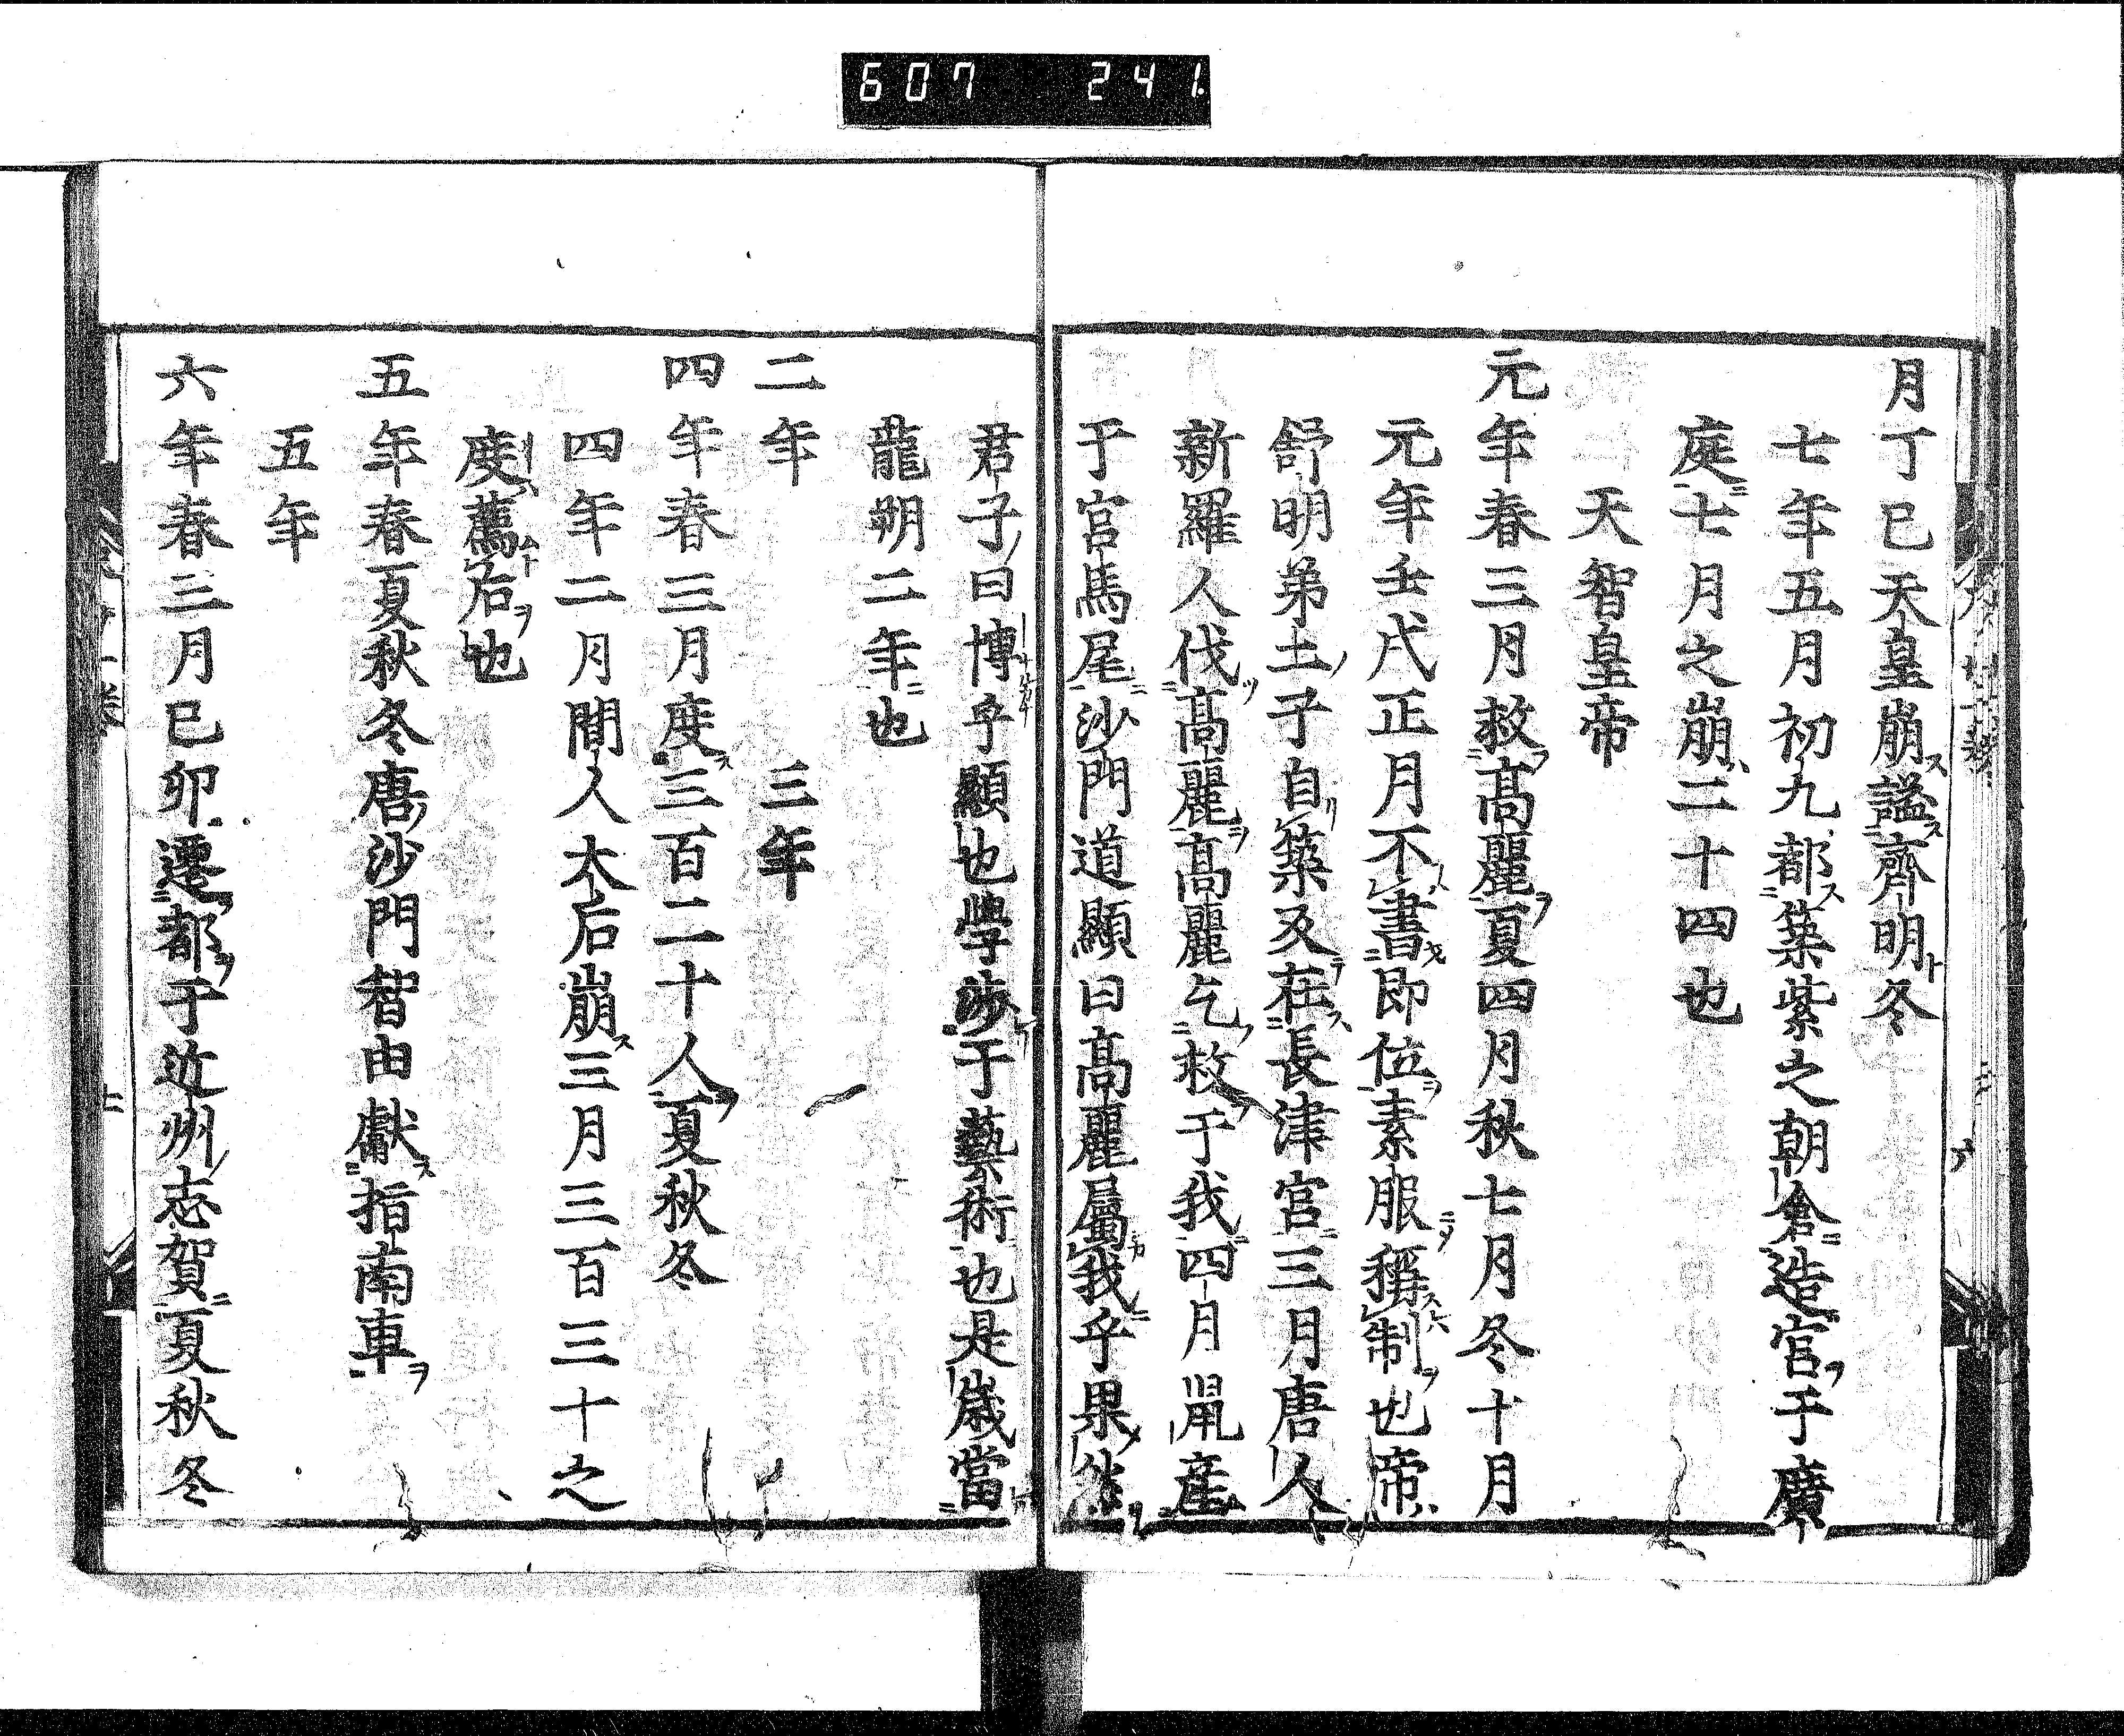 607 241
月丁巳天皇崩ス謚ス齊明ト冬
七年五月初九都ス築紫之朝倉ニ造宮ヲ于廣
庭ニ七月之崩二十四也
天智皇帝
元年春三月救高麗ヲ夏四月秋七月冬十月
元年壬戌正月不書即位素服稱制也帝
舒明弟土子自築及在長津宮三月唐人
新羅人伐高麗高麗乞救于我四月鼠産
于宮馬尾沙門道顯曰高麗屬我乎果
君子曰博乎顯也學渉于藝術也是歳當
龍朔二年也
二年 三年
四年春三月度三百二十人夏秋冬
四年二月間人太后崩ス三月三百三十之
度薦后ヲ也
五年春夏秋冬唐沙門智由獻ス指南車ヲ
五年
六年春三月已卯遷都于近州志賀夏秋冬